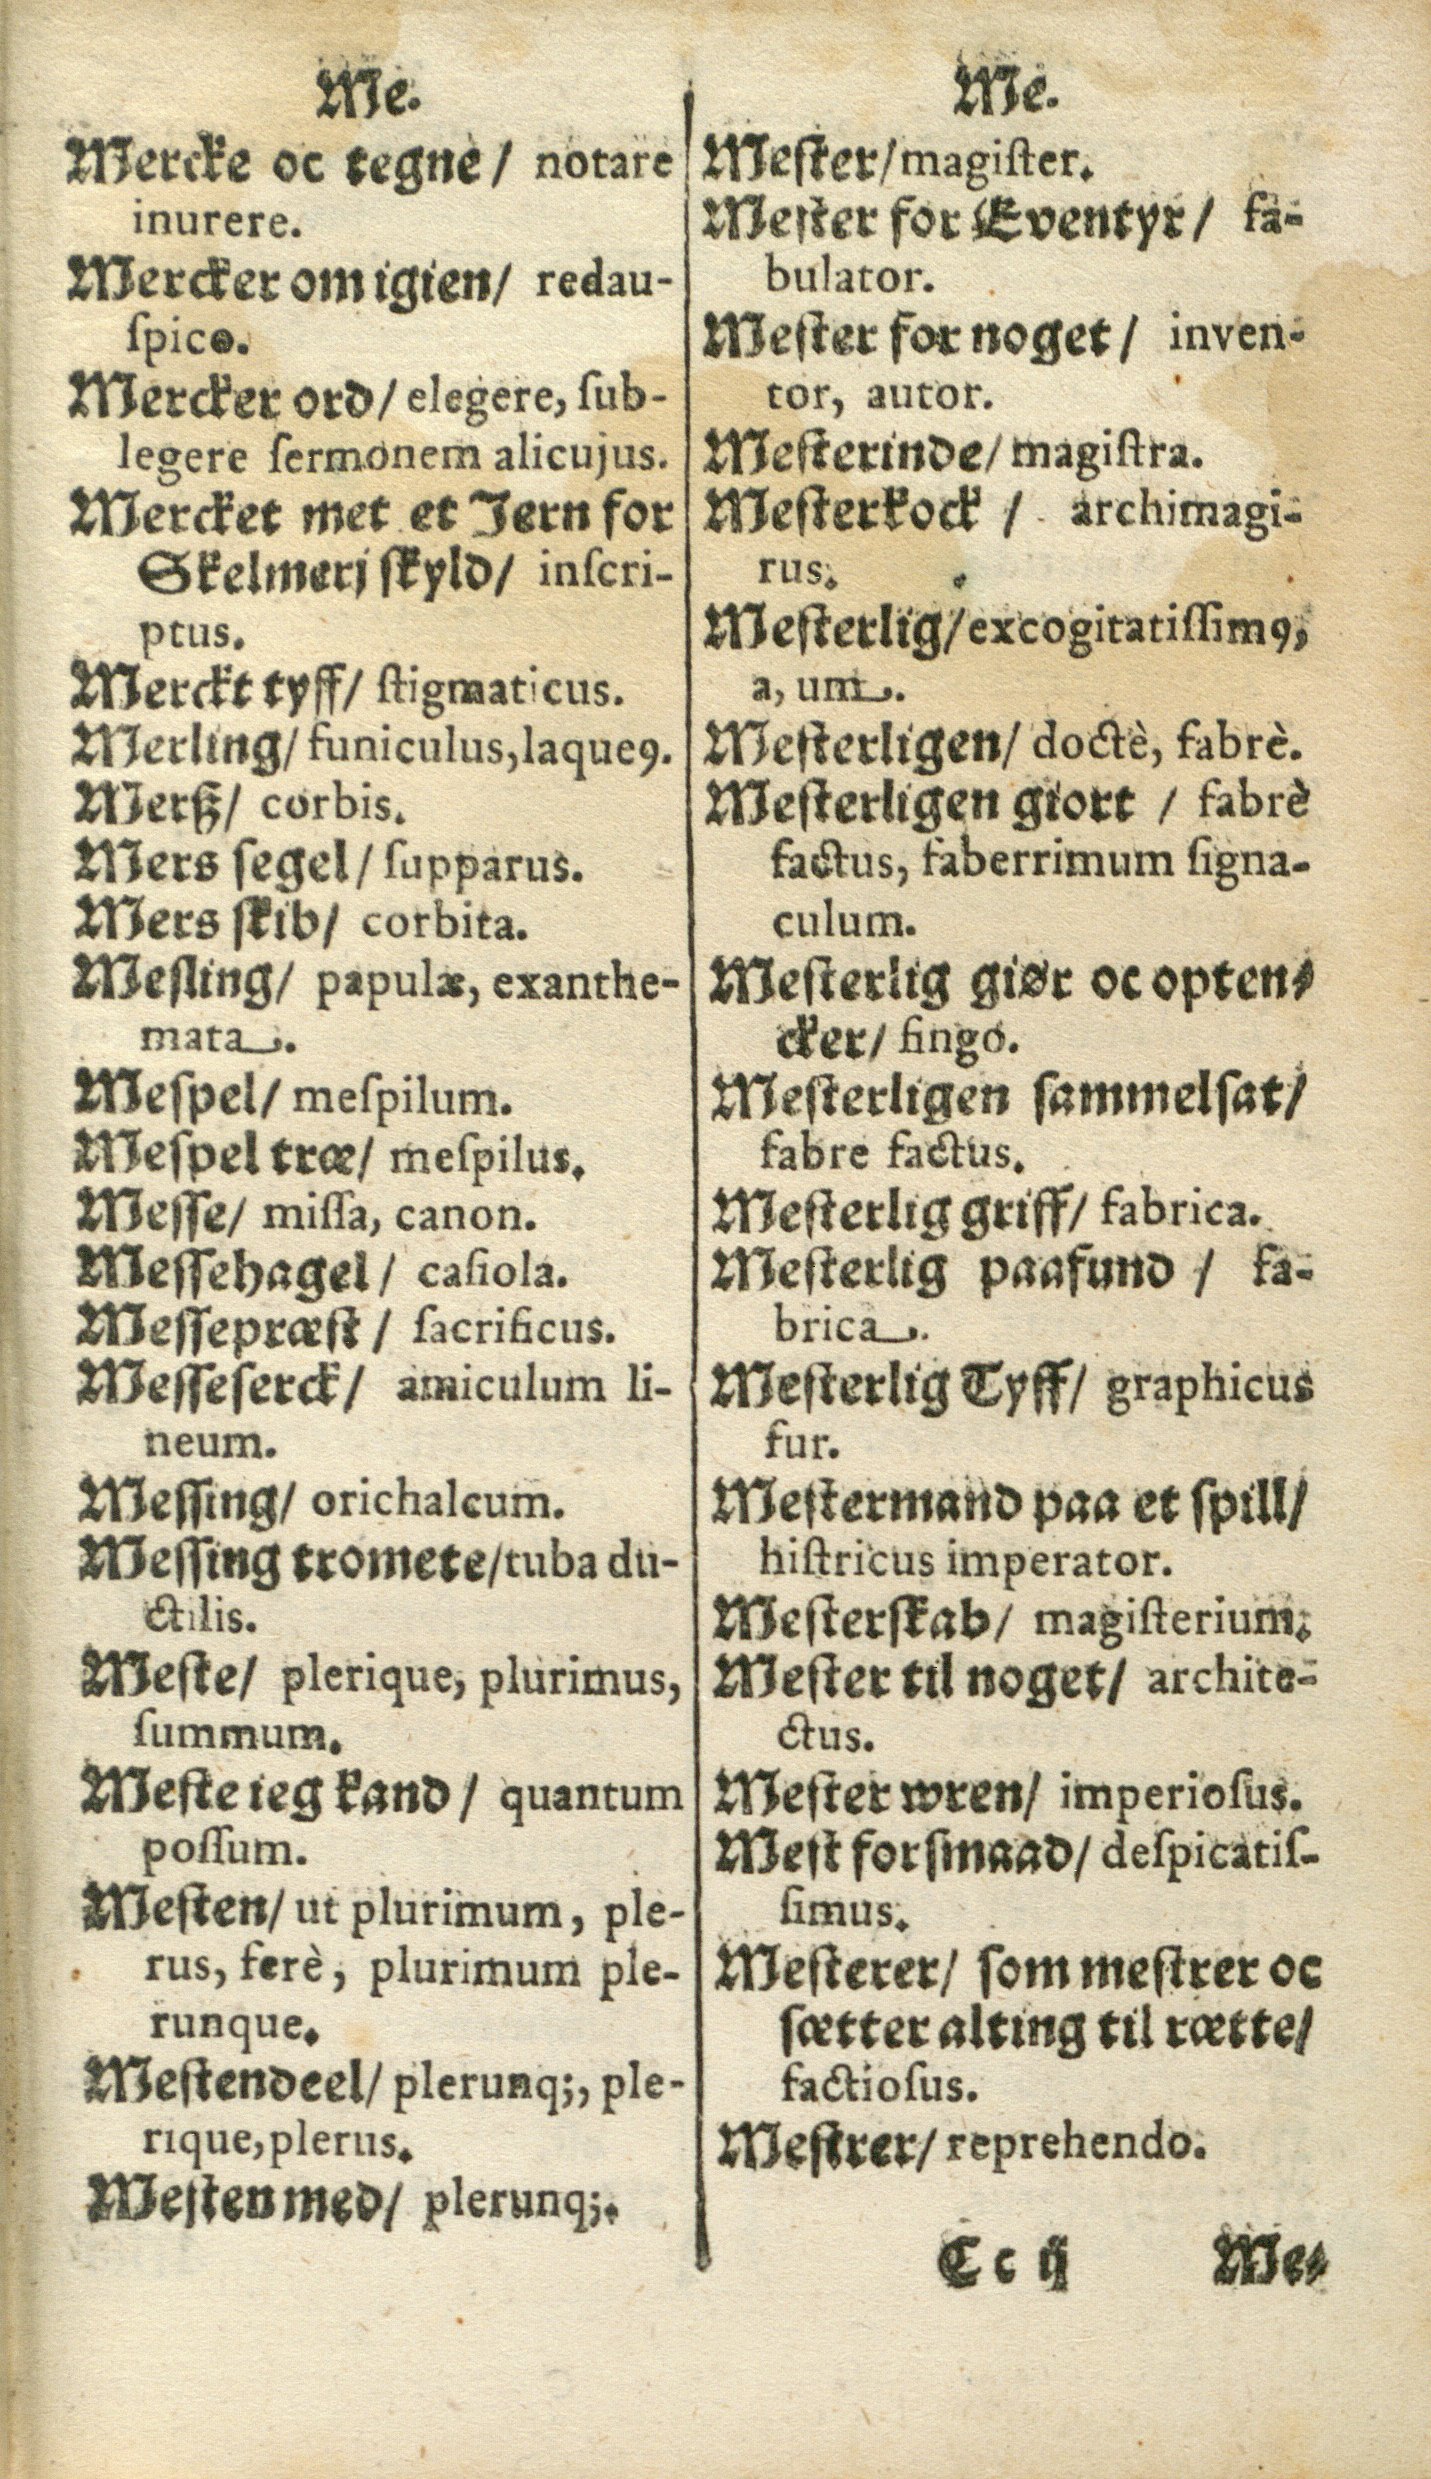 Me.
Mercke oc tegne / notare
inurere.
Mercker om igien / redau-
ſpico.
Mercker ord / elegere, ſub-
legere ſermonem alicujus.
Mercket met et Jern for
Skelmerj ſkyld / inſcri-
ptus.
Merckt tyff / ſtigmaticus.
Merling / funiculus, laqueꝰ.
Merß / corbis.
Mers ſegel / ſupparus.
Mers ſkib / corbita.
Mesling / papulæ, exanthe-
mata.
Meſpel / meſpilum.
Meſpel træ / meſpilus.
Meſſe / miſſa, canon.
Meſſehagel / caſiola.
Meſſepræſt / ſacrificus.
Meſſeſerck / amiculum li-
neum.
Meſſing / orichalcum.
Meſſing tromete / tuba du-
ctilis.
Meſte / plerique, plurimus,
ſummum.
Meſte ieg kand / quantum
poſſum.
Meſten / ut plurimum, ple-
rus, ferè, plurimum ple-
runque.
Meſtendeel / plerunq;, ple-
rique, plerus.
Meſten med / plerunq;.
Me.
Meſter / magiſter.
Meſter for Eventyr / fa-
bulator.
Meſter for noget / inven-
tor, autor.
Meſterinde / magiſtra.
Meſterkock / archimagi-
rus.
Meſterlig / excogitatiſſimꝰ,
a, um.
Meſterligen / doctè, fabrè.
Meſterligen giort / fabrè
factus, faberrimum ſigna-
culum.
Meſterlig giør oc opten-
cker / fingo.
Meſterligen ſammelſat /
fabre factus.
Meſterlig griff / fabrica.
Meſterlig paafund / fa-
brica.
Meſterlig Tyff / graphicus
fur.
Meſtermand paa et ſpill /
hiſtricus imperator.
Meſterſkab / magiſterium.
Meſter til noget / archite-
ctus.
Meſter wren / imperioſus.
Meſt forſmaad / deſpicatiſ-
ſimus.
Meſterer / ſom meſtrer oc
ſætter alting til rætte /
factioſus.
Meſtrer / reprehendo.
Cc ij Me-